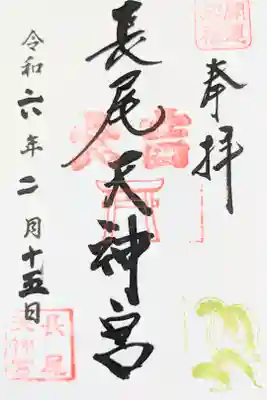 奉拝
長尾天神宮
令和六年二月十五日
長尾
天神宮